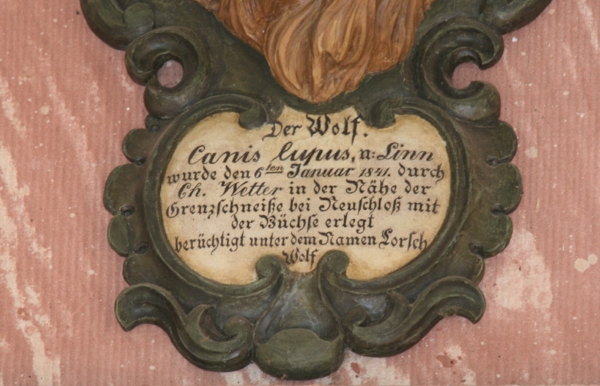 Der Wolf.
Canis lupus, n: Linn
wurde den 6ten Januar 1841. durch
Ch. Wetter in der Nähe der
Grenzschneiße bei Neuschloß mit
der Büchse erlegt
berüchtigt unter dem Namen Lorsch
Wolf